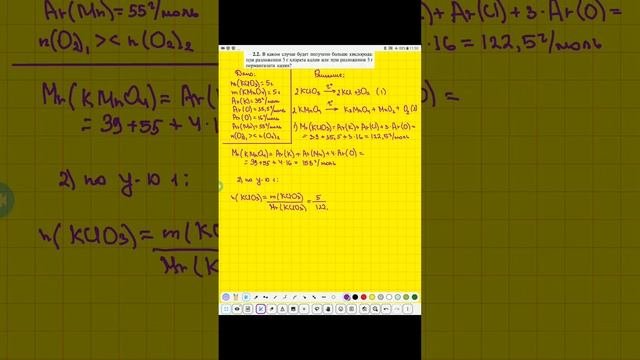 2.2. В каком случае будет получено больше кислорода:
при разложении 5 г хлората калия или при разложении 5 г
перманганата калия?
Дано:
m(KClO3)=5г
m(KMnO4)=5г
Ar(K)=39г/моль
Ar(Cl)=35,5г/моль
Ar(O)=16г/моль
Ar(Mn)=55г/моль
n(O2)1 >< n(O2)2
Решение:
2KClO3 t° → 2KCl+3O2 (1)
2KMnO4 t° → K2MnO4+MnO2+O2 (2)
1) Mr(KClO3)=Ar(K)+Ar(Cl)+3·Ar(O)=
=39+35,5+3·16=122,5г/моль
Mr(KMnO4)=Ar(K)+Ar(Mn)+4·Ar(O)=
=39+55+4·16=158г/моль
2) по у-ю 1:
n(KClO3)=m(KClO3)/Mr(KClO3)=5/122,
Ar(Mn)=55г/моль
n(O2)1 >< n(O2)2
Mr(KMnO4)=Ar(
=39+55+4·1
2) по у-ю 1:
n(KClO3)=m(K
Mr(K
)+Ar(Cl)+3·Ar(O)=
·16=122,5г/моль
(O)=